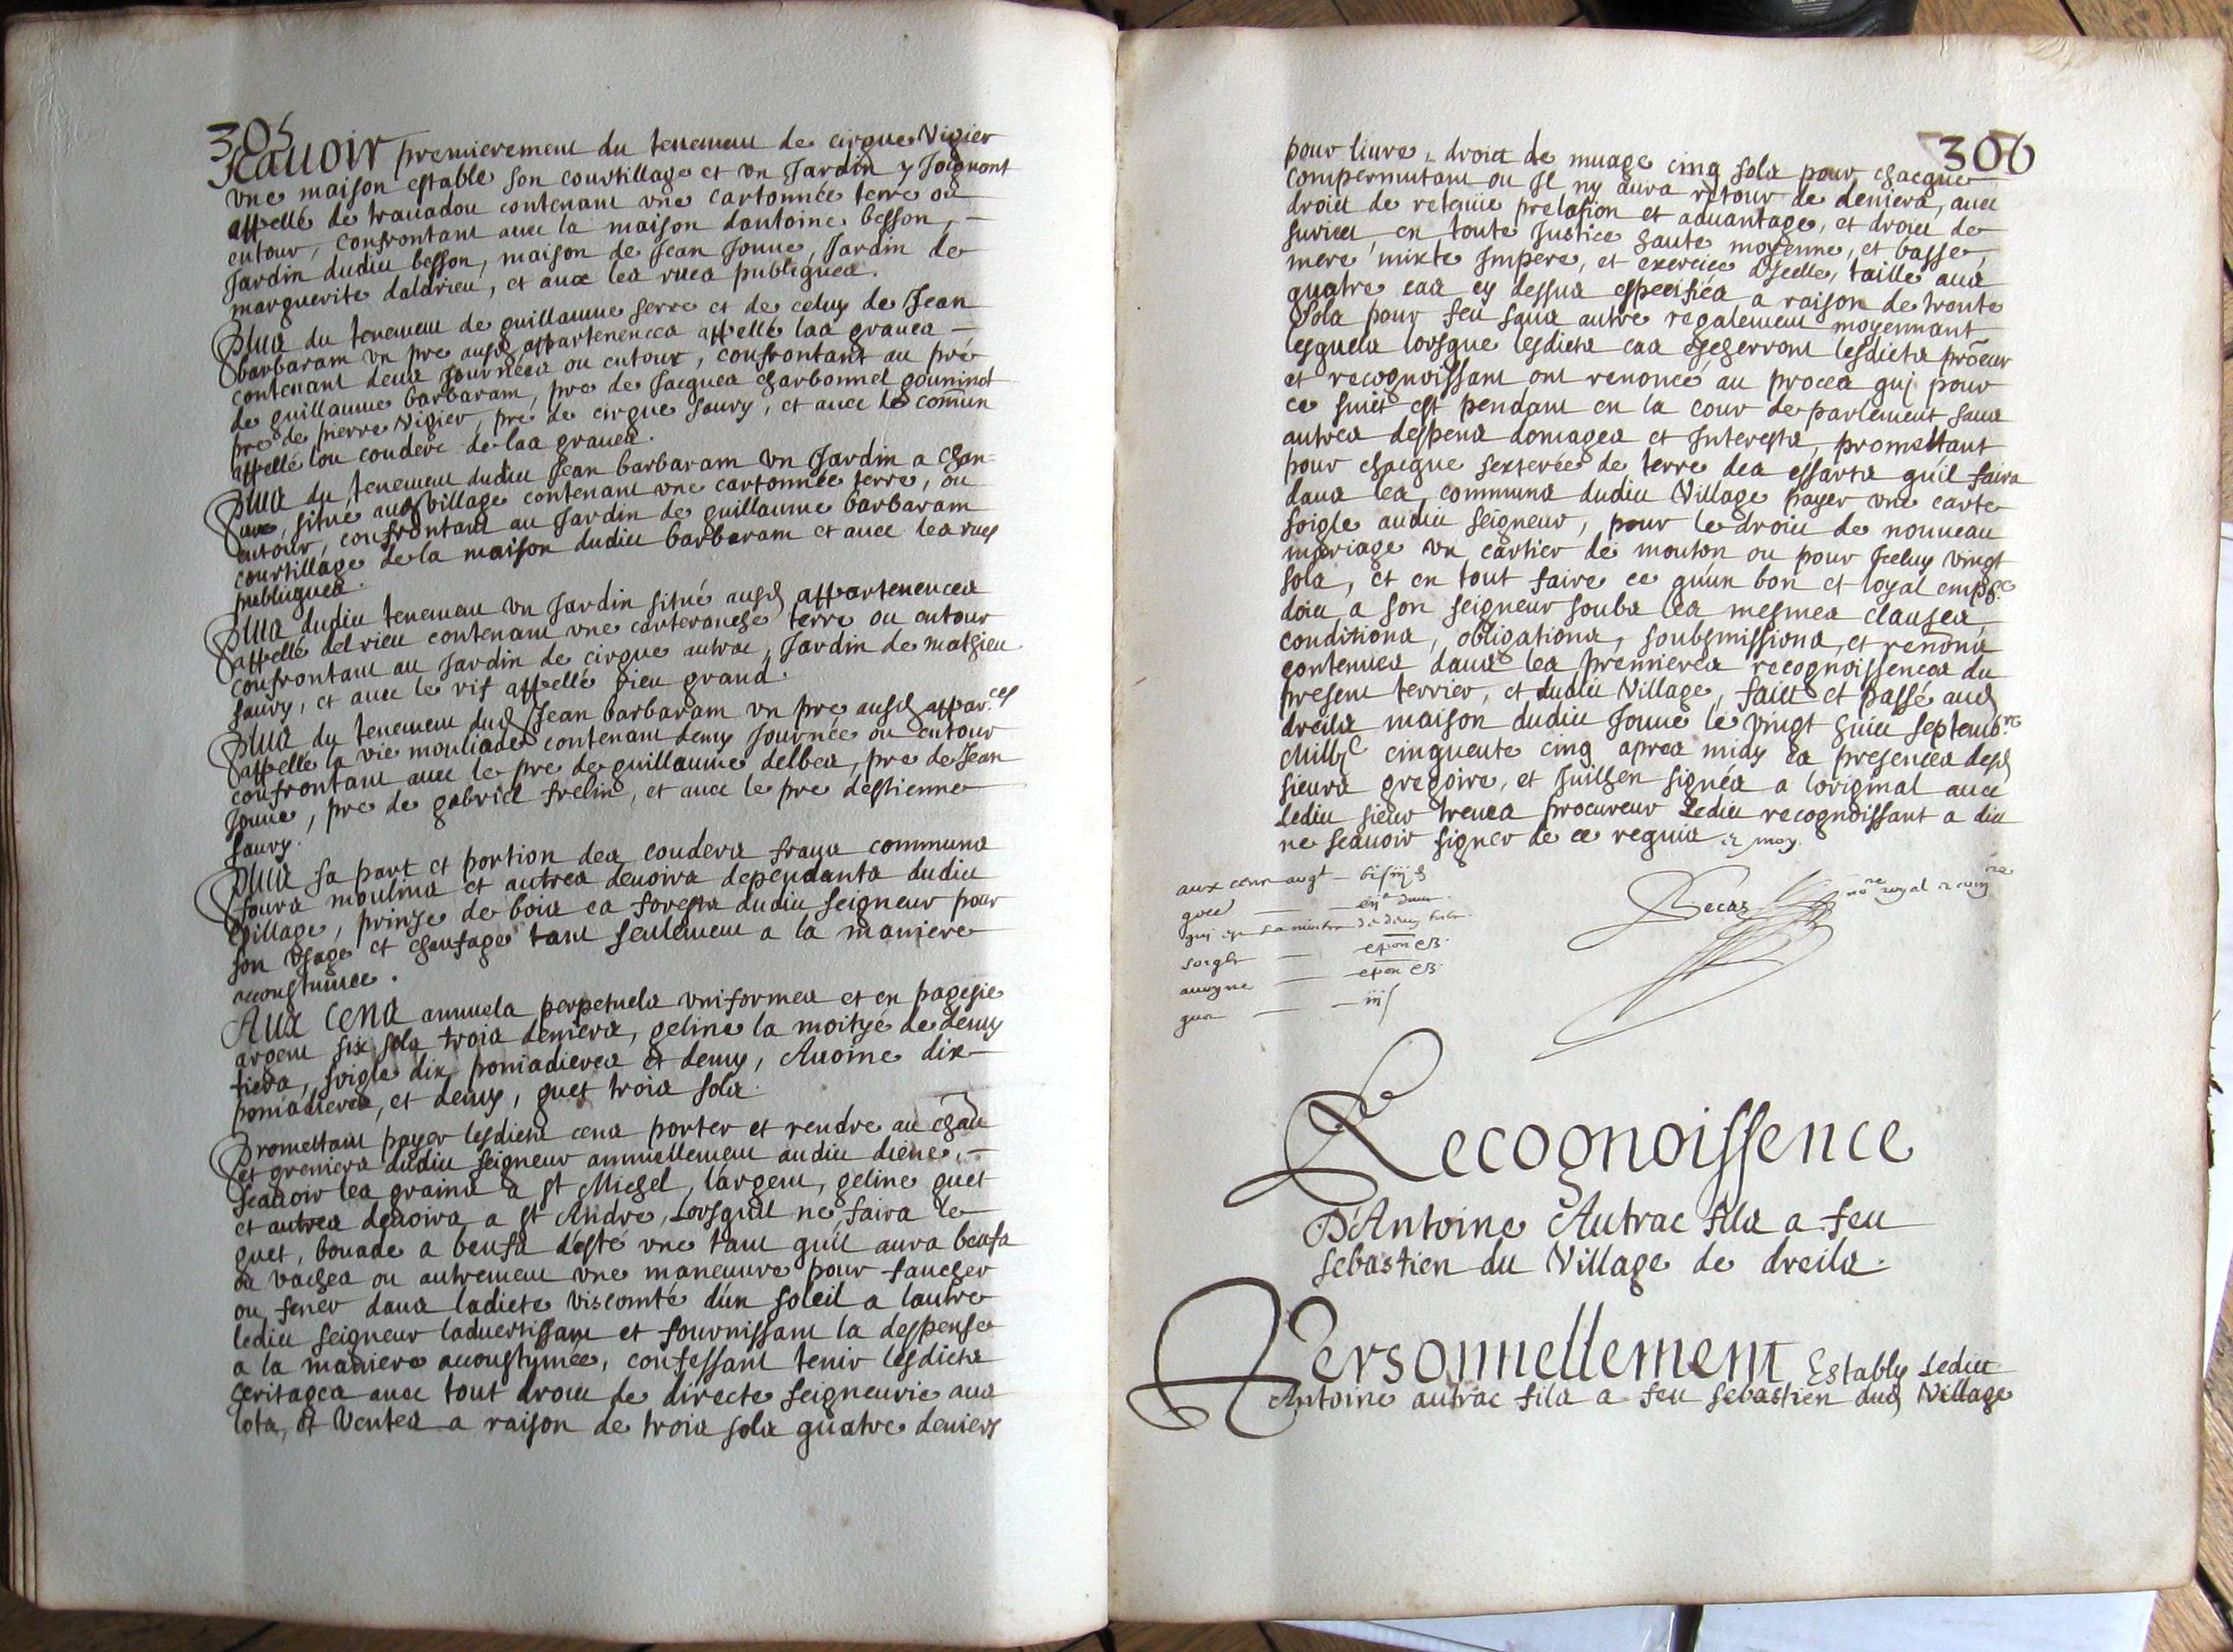 305
Scauoir premierement du tenement de cirgue Vigier
vne maison estable son courtillage et vn Jardin y Joignant
appellé de trauadou contenant vne cartonnée terre ou
entour, confrontant auec la maison dantoine besson, –
Jardin dudict besson, maison de Jean Jouue, Jardin de
marguerite daldrieu, et aux les rues publiques.
Plus du tenement de guillaume serre et de celuy de Jean
barbaram vn pre ausd appartenences appellé las graues –
contenant deux Journées ou entour, confrontant au pré
de guillaume barbaram, pre de Jacques charbonnel gouninot
pre de pierre Vigier, pré de cirgue saury, et auec le comun
appellé lou couderc de las graues.
Plus du tenement dudict Jean barbaram vn Jardin a chan=
ure, situé aud village contenant vne cartonnée terre, ou
entour, confrontant au Jardin de guillaume barbaram
courtillage de la maison dudict barbaram et auec les rues
publiques.
Plus dudict tenement vn Jardin situé ausd appartenences
appellé del rieu contenant vne carteranche terre ou entour
confrontant au Jardin de cirgue autrac, Jardin de mathieu
saury, et auec le rif appellé rieu grand.
Plus du tenement dud Jean barbaram vn pre ausd appar.ces
appellé la vie mouliade contenant demy Journée ou entour
confrontant auec le pre de guillaume delbes, pre de Jean
Jouue, pre de gabriel frelin, et auec le pre destienne
saury.
Plus sa part et portion des couders fraus communs
fours moulins et autres deuoirs dependants dudict
village, prinse de bois es forests dudict seigneur pour
son vsage et chaufage tant seulement a la maniere
acoustumee.
Aux cens annuels perpetuels vniformes et en pagesie
argent six sols trois deniers, geline la moitye de demy
tiers, soigle dix poniadieres et demy, Auoine dix
poniadieres, et demy, guet trois sols.
Promettant payer lesdicts cens porter et rendre au chau
et greniers dudict seigneur annuellement audict diene, –
scauoir les grains a st Michel, largent, geline guet
et autres deuoirs a st Andre, Lorsquil ne faira le
guet, bouade a beufs d'esté vne tant quil aura beufs
ou vaches ou autrement vne maneuure pour faucher
ou fener dans ladicte viscomté d'un soleil a lautre
ledict seigneur laduertissant et fournissant la despense
a la maniere acoustumée, confessant tenir lesdicts
heritages auec tout droict de directe seigneurie aux
lots, et Ventes a raison de trois sols quatre deniers
306
pour liure, droict de muage cinq sols pour chacque
compermutant ou Il ny aura retour de deniers, auec
droict de retenüe prelasion et aduantage, et droict de
suruict, en toute Justice haute moyenne, et basse,
mere mixte Impere, et exercice d'Icelle, taille aux
quatre cas cy dessus especifiés a raison de trente
sols pour feu sans autre regalement moyennant
lesquels lorsque lesdicts cas escherront lesdicts procur
et recognoissant ont renoncé au proces qui pour
ce suiet est pendant en la cour de parlement sans
autres despens domages et Interests, promettant
pour chacque sexterée de terre des essarts quil faira
dans les communs dudict Village payer vne carte
soigle audict seigneur, pour le droict de nouueau
mariage vn cartier de mouton ou pour Iceluy vingt
sols, et en tout faire ce quun bon et loyal
doict a son seigneur soubs les mesmes clauses,
conditions, obligations, soubsmissions, et renons
contenues dans les premieres recognoissences du
present terrier, et dudict Village, faict et passé aud
dreils maison dudict Jouue le vingt huict septemb.re
Mill vjc cinquente cinq apres midy es presences desd
sieurs gregoire, et Juilhen signés a loriginal auec
Ledict sieur treues procureur Ledict recognoissant a dict
ne scauoir signer de ce requis et moy.
aux cens argt
soigle
auoyne
guet — iij s
Recognoissence
D'Antoine Autrac fils a feu
sebastien du Village de dreils.
Personnellement Estably Ledict
Antoine autrac fils a feu sebastien dud Village